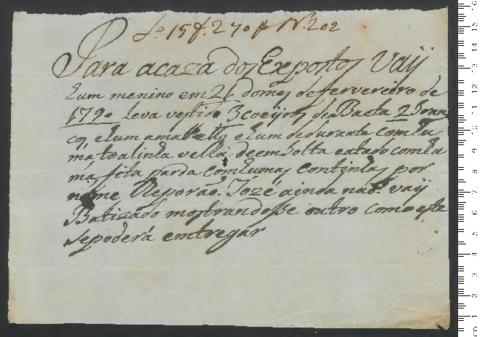 Lº 15 f. 270 Nº 202
Para a caza dos Expostos Vaij
hum menino em 26 do mes de fervereiro de
1790 Leva vestido 3 coeijros de Baeta 2 bran
cos e hum amarello e hum de
ma toalinha velha de em bolta e atado com hu
ma fita parda com humas continhas por
nome lhe porão Jozé ainda não vaij
Batizado mostrandosse outro como este
se poderá entregar